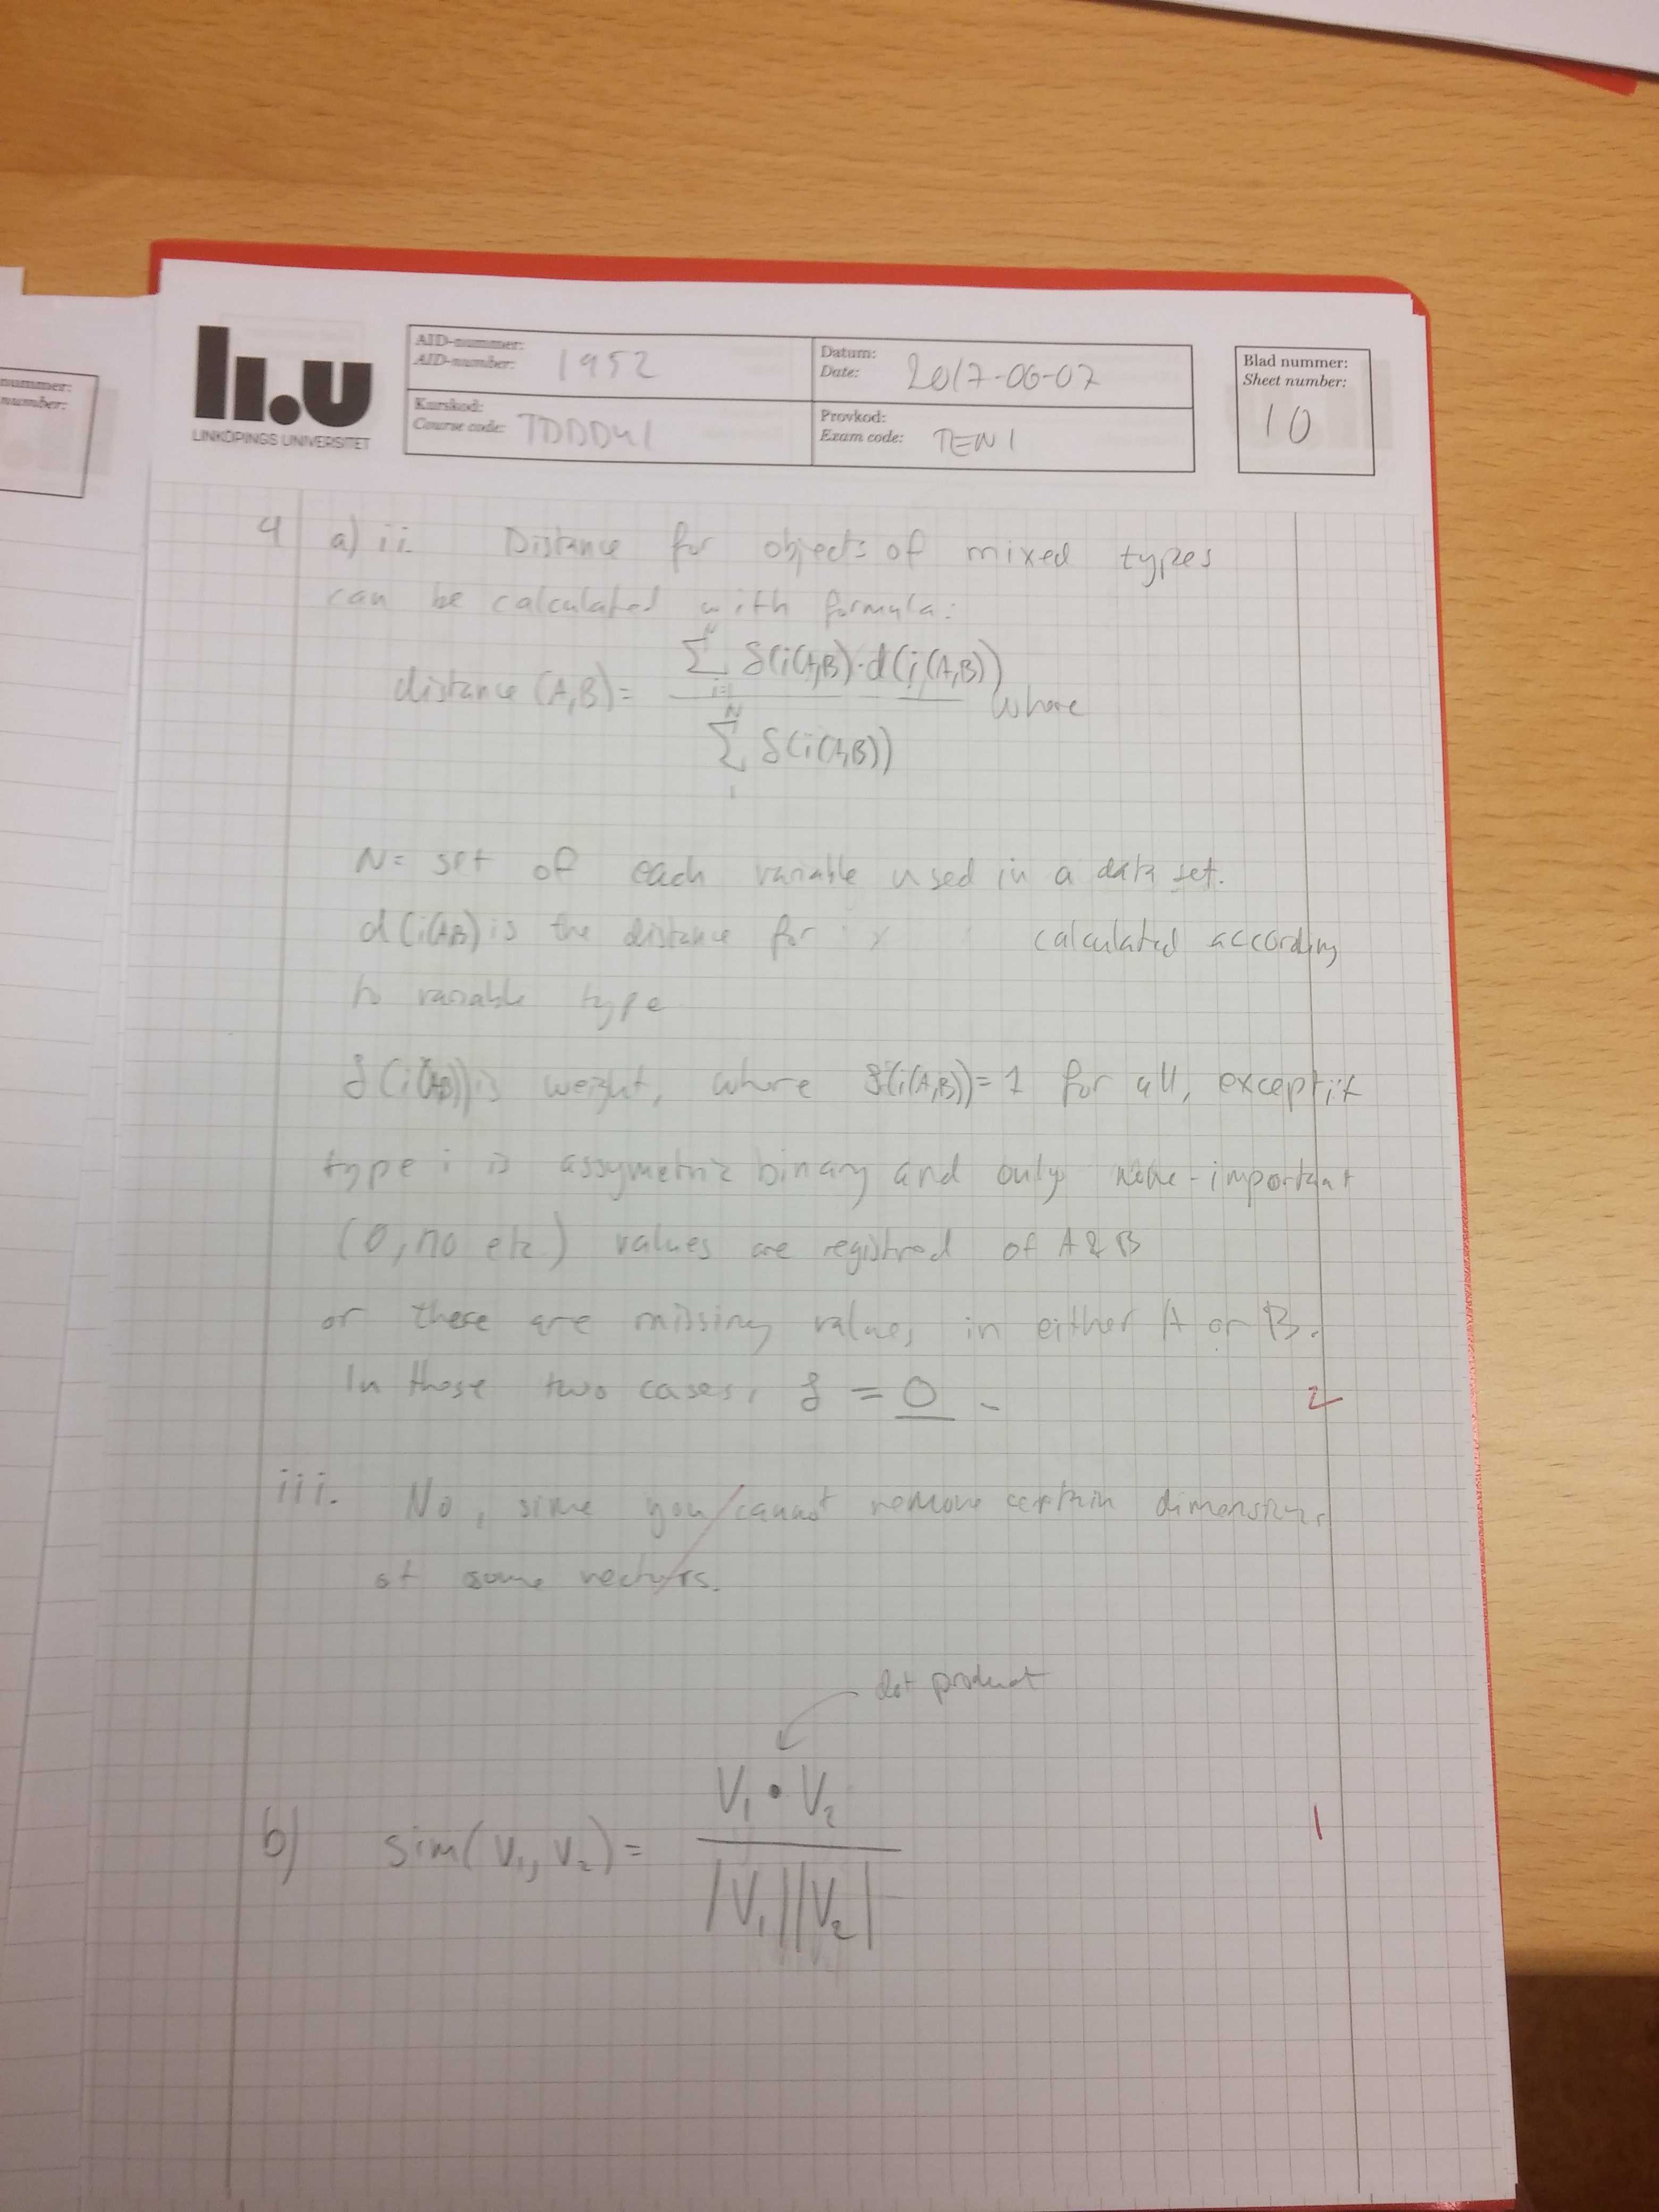 nummer:
number:
li.u
LINKÖPINGS UNIVERSITET
AID-nummer:
AID-number: 1952
Datum:
Date: 2017-06-07
Kurskod:
Course code: TDDD41
Provkod:
Exam code: TEN1
Blad nummer:
Sheet number:
10
4 a) ii Distance for objects of mixed types
can be calculated with formula:
distance (A,B) = \frac{\sum_{i=1}^{N} δ(i(A,B)) · d(i(A,B))}{\sum_{1}^{N} δ(i(A,B))} where
N = set of each variable used in a data set.
d(i(A,B) is the distance for calculated according
to variable type
δ(i(A,B)) is weight, where δ(i(A,B)) = 1 for all, except if
type i is assymetric binary and only none-important
(0, no etc.) values are registred of A & B
or there are missing values in either A or B.
In those two cases, δ = 0
2
iii. No, since you cannot remove certain dimensions
of some vectors.
dot product
b) sim(V₁, V₂) = \frac{V₁ • V₂}{|V₁||V₂|}
1